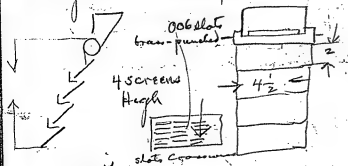 .006 slots
brass-punched
4 screens
High
4 1/2
2
slots crossways